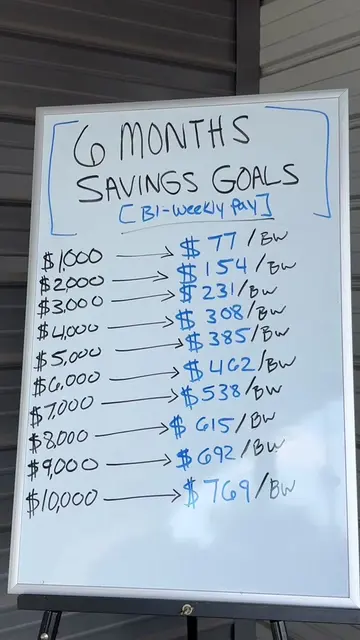 6 MONTHS
SAVINGS GOALS
[BI-weekly pay]
$1,000 → $77/BW
$2,000 → $154/BW
$3,000 → $231/BW
$4,000 → $308/BW
$5,000 → $385/BW
$6,000 → $462/BW
$7,000 → $538/BW
$8,000 → $615/BW
$9,000 → $692/BW
$10,000 → $769/BW